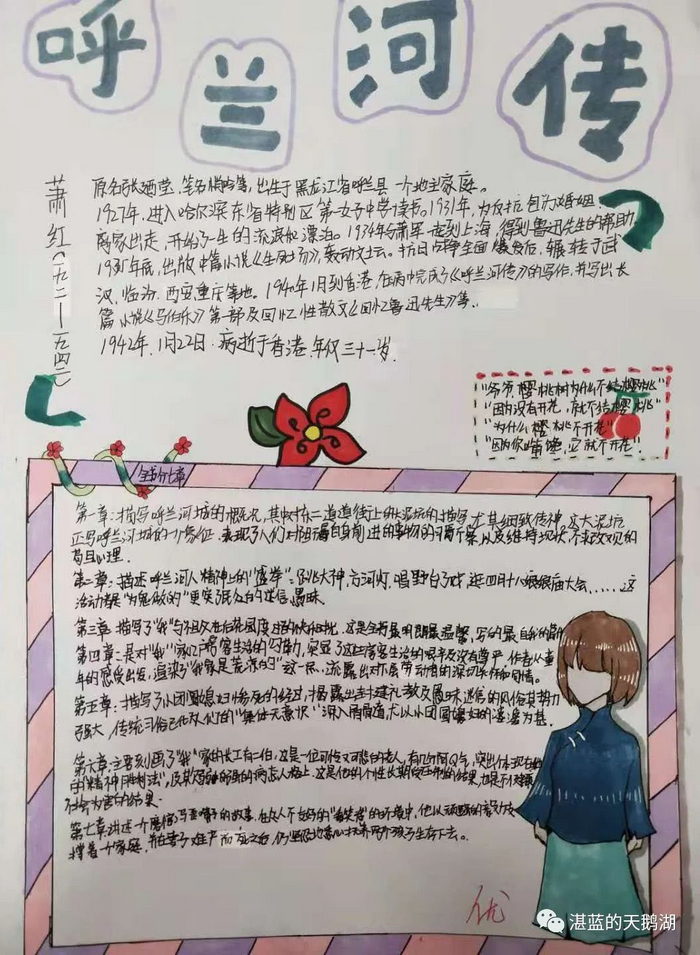 呼兰河传
萧红(一九一一—一九四二)
原名张廼莹,笔名悄吟等,出生于黑龙江省呼兰县一个地主家庭。
1927年,进入哈尔滨东省特别区第一女子中学读书。1931年,为反抗包办婚姻
离家出走,开始了一生的流浪似漂泊。1934年与萧军走到上海,得到鲁迅先生的帮助,
1935年底,出版中篇小说《生死场》,轰动文坛。抗日战争全面爆发后,辗转于武
汉、临汾、西安重庆等地。1940年1月到香港,在病中完成了《呼兰河传》的写作,并写出长
篇小说《马伯乐》第一部及回忆性散文《回忆鲁迅先生》等。
1942年,1月22日,病逝于香港,年仅三十一岁。
"爷爷,樱桃树为什么不结樱桃"
"因为没有开花,就不结樱桃"
"为什么樱桃不开花"
"因为你嘴馋,它就不开花"
全书分七章
第一章:描写呼兰河城的概况,其中对东二道道街上的大泥坑的描写尤其细致传神,这大泥坑
正写呼兰河城的一个象征,表现了人们对祸福自身前进的事物的习惯,以及维持现状,不求改观的
苟且心理。
第二章:描述呼兰河人精神上的"盛举":跳大神、放河灯、唱野台子戏、逛四月十八娘娘庙大会......这
活动都是"为鬼做的"更突显民众的迷信、愚昧
第三章:描写了"我"与祖父在后花园度过的快乐时光,这是全书最明朗最温馨,写的最自我的篇
第四章:是对"我"家
年的感受出发,渲染了"我家是荒凉的"这一点,流露出对底层劳动者的深切关怀和同情。
第五章:描写了小团圆媳妇惨死的经过,揭露出封建礼教及愚昧迷信的风俗其势力
强大,传统习俗已化为人们的"集体无意识"深入骨髓,尤以小团圆媳妇的婆婆为甚。
第六章:主要刻画了"我"家的长工有二伯,这是一位可怜又可悲的老人,有几分阿Q气,突出体现在
的"精神胜利法",及
社会为害的结果。
第七章:讲述一个磨倌冯歪嘴子的故事,在众人不友好的"看客"的环境中,他以顽强的
撑着一个家庭,并在妻子难产而死之后,仍坚强地
优
湛蓝的天鹅湖